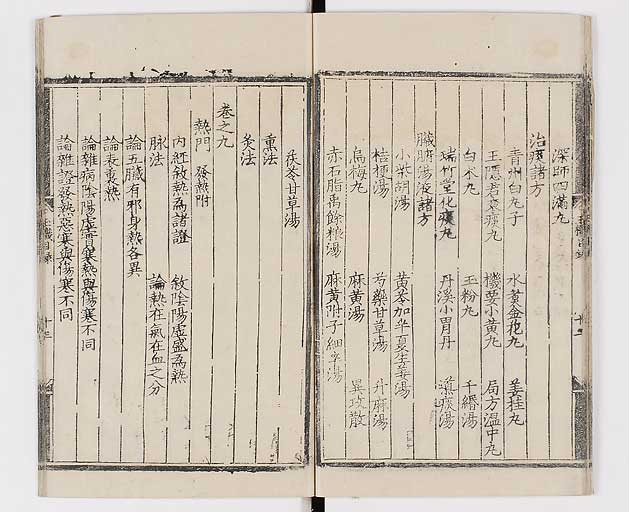 深師四滿丸
治痰諸方
青州白丸子 水煮金花丸 姜桂丸
王隱君滾痰丸 機要小黃丸 局方溫中丸
白朮丸 玉粉丸 千緡湯
瑞竹堂化痰丸 丹溪小胃丹 滾痰湯
臟腑瀉痰諸方
小柴胡湯 黃芩加半夏生姜湯
桔梗湯 芍藥甘草湯 升麻湯
烏梅丸 麻黃湯 異攻散
赤石脂禹餘粮湯 麻黃附子細辛湯
茯苓甘草湯
熏法
灸法
卷之九
熱門 發熱附
內經敘熱為諸證 敘陰陽虛盛為熱
脉法 論熱在氣在血之分
論五臟有邪身熱各異
論表裏熱
論雜病陰陽虛實寒熱與傷寒不同
論雜證發熱惡寒與傷寒不同